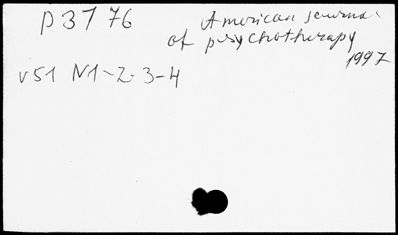 P 37 76
American journal
of psychotherapy
1997
v51 N1-2-3-4